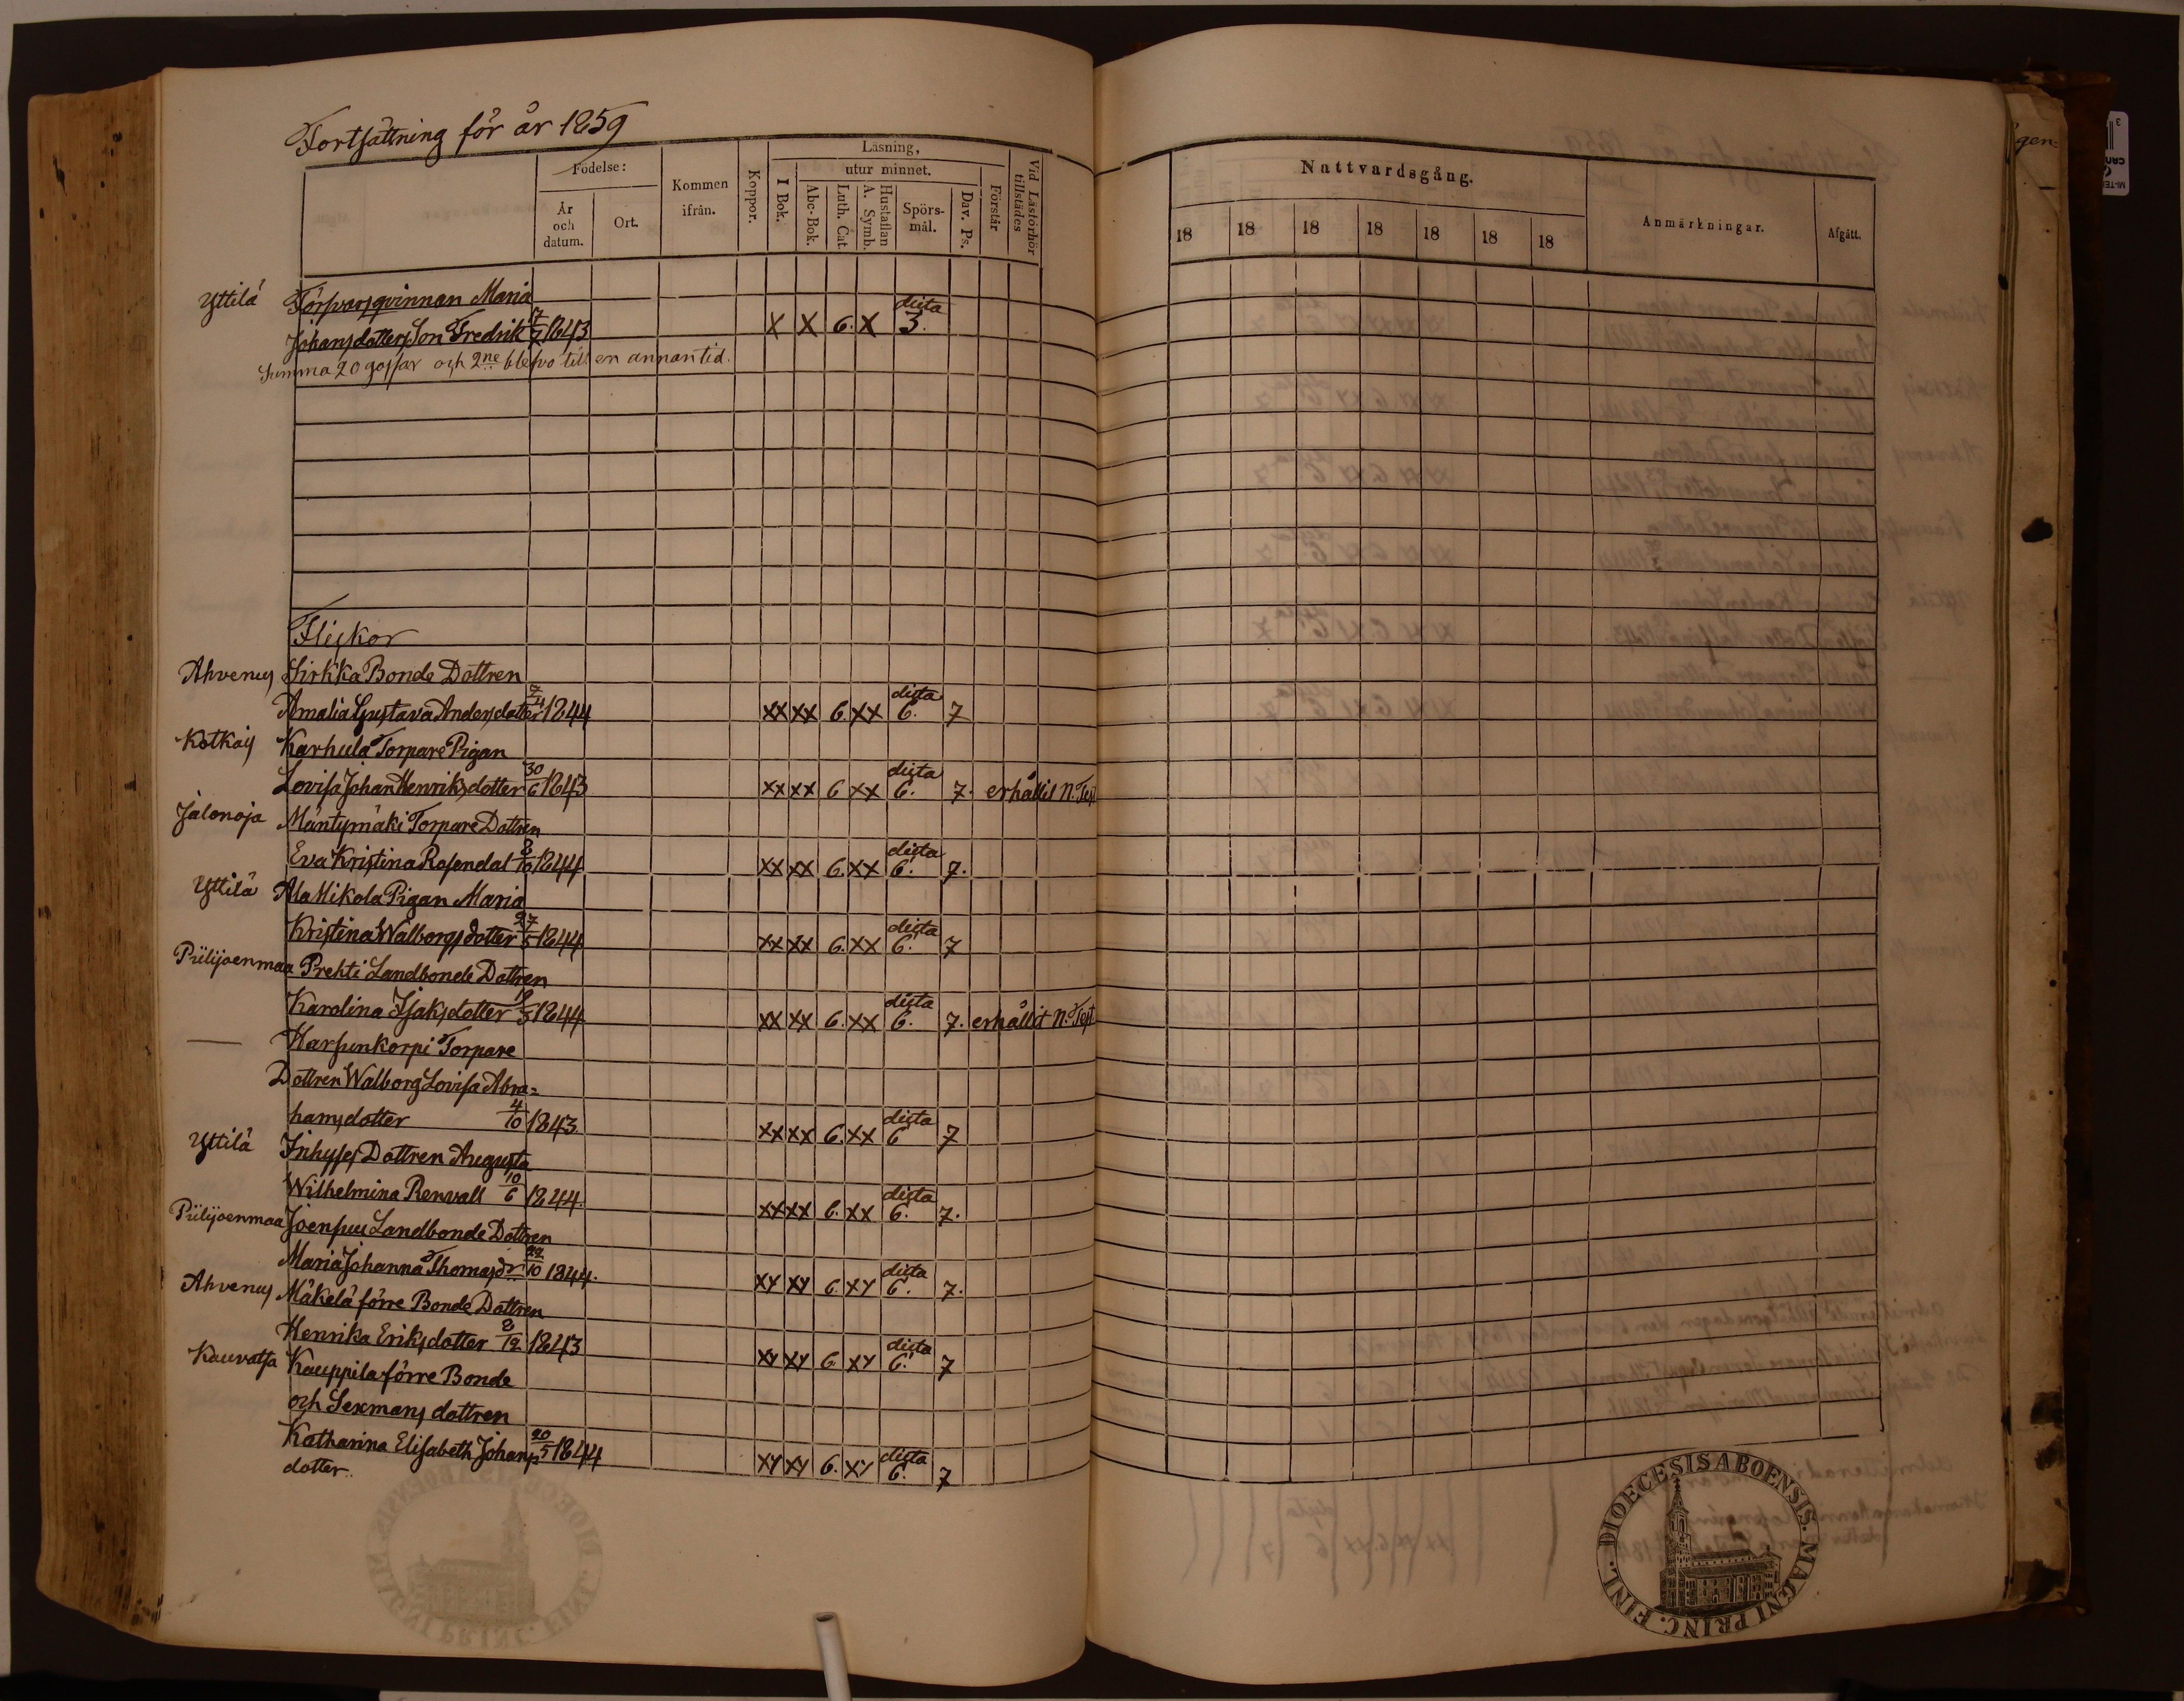 Fortsättning för år 1859
Födelse:
År och datum.
Ort.
Kommen ifrån.
Koppor.
Läsning,
I Bok.
utur minnet.
Abc-Bok.
Luth. Cat.
Hustaflan A. Symb.
Spörs-mål.
Dav. Ps.
Förstår
Vid Läsförhör tillstädes
Nattvardsgång.
18 18 18 18 18 18 18
Anmärkningar.
Afgått.
Yttilä Försvarsqvinnan Maria
Johansdotters Son Fredrik 17/7 1843 X X 6. X dicta 3.
Summa 20 gossar och 2ne blefvo till en annan tid.
Flickor
Ahvenus Sirkka Bonde Dottren
Amalia Gustava Andersdotter 7/4 1844 XX XX 6. XX dicta 6. 7
Kotkais Karhula Torpare Pigan
Lovisa Johan Henriksdotter 30/6 1843 XX XX 6 XX dicta 6. 7. erhållit N. Test
Jalonoja Mäntymäki Torpare Dottren
Eva Kristina Rosendal 8/10 1844 XX XX 6. XX dicta 6. 7.
Yttilä Ala Mikola Pigan Maria
Kristina Walborgsdotter 27/5 1844 XX XX 6. XX dicta 6. 7
Piilijoenmaa Prehti Landbonde Dottren
Karolina Isaksdotter 18/5 1844 XX XX 6. XX dicta 6. 7. erhållit N. Test
— Harsunkorpi Torpare
Dottren Walborg Lovisa Abra=
hamsdotter 4/10 1843. XX XX 6. XX dicta 6 7
Yttilä Inhyses Dottren Augusta
Wilhelmina Renvall 10/6 1844. XX XX 6. XX dicta 6. 7.
Piilijoenmaa Joensuu Landbonde Dottren
Maria Johanna Thomasdr 22/10 1844. XX XX 6. XX dicta 6. 7.
Ahvenus Mäkelä förre Bonde Dottren
Henrika Eriksdotter 8/12 1843 XX XX 6. XX dicta 6. 7
Kauvatsa Kauppila förre Bonde
och Sexmans dottren
Katharina Elisabeth Johans 20/5 1844 XX XX 6. XX dicta 6. 7
dotter.
DIOECESIS ABOENSIS. MAGNI PRINC. FINL.